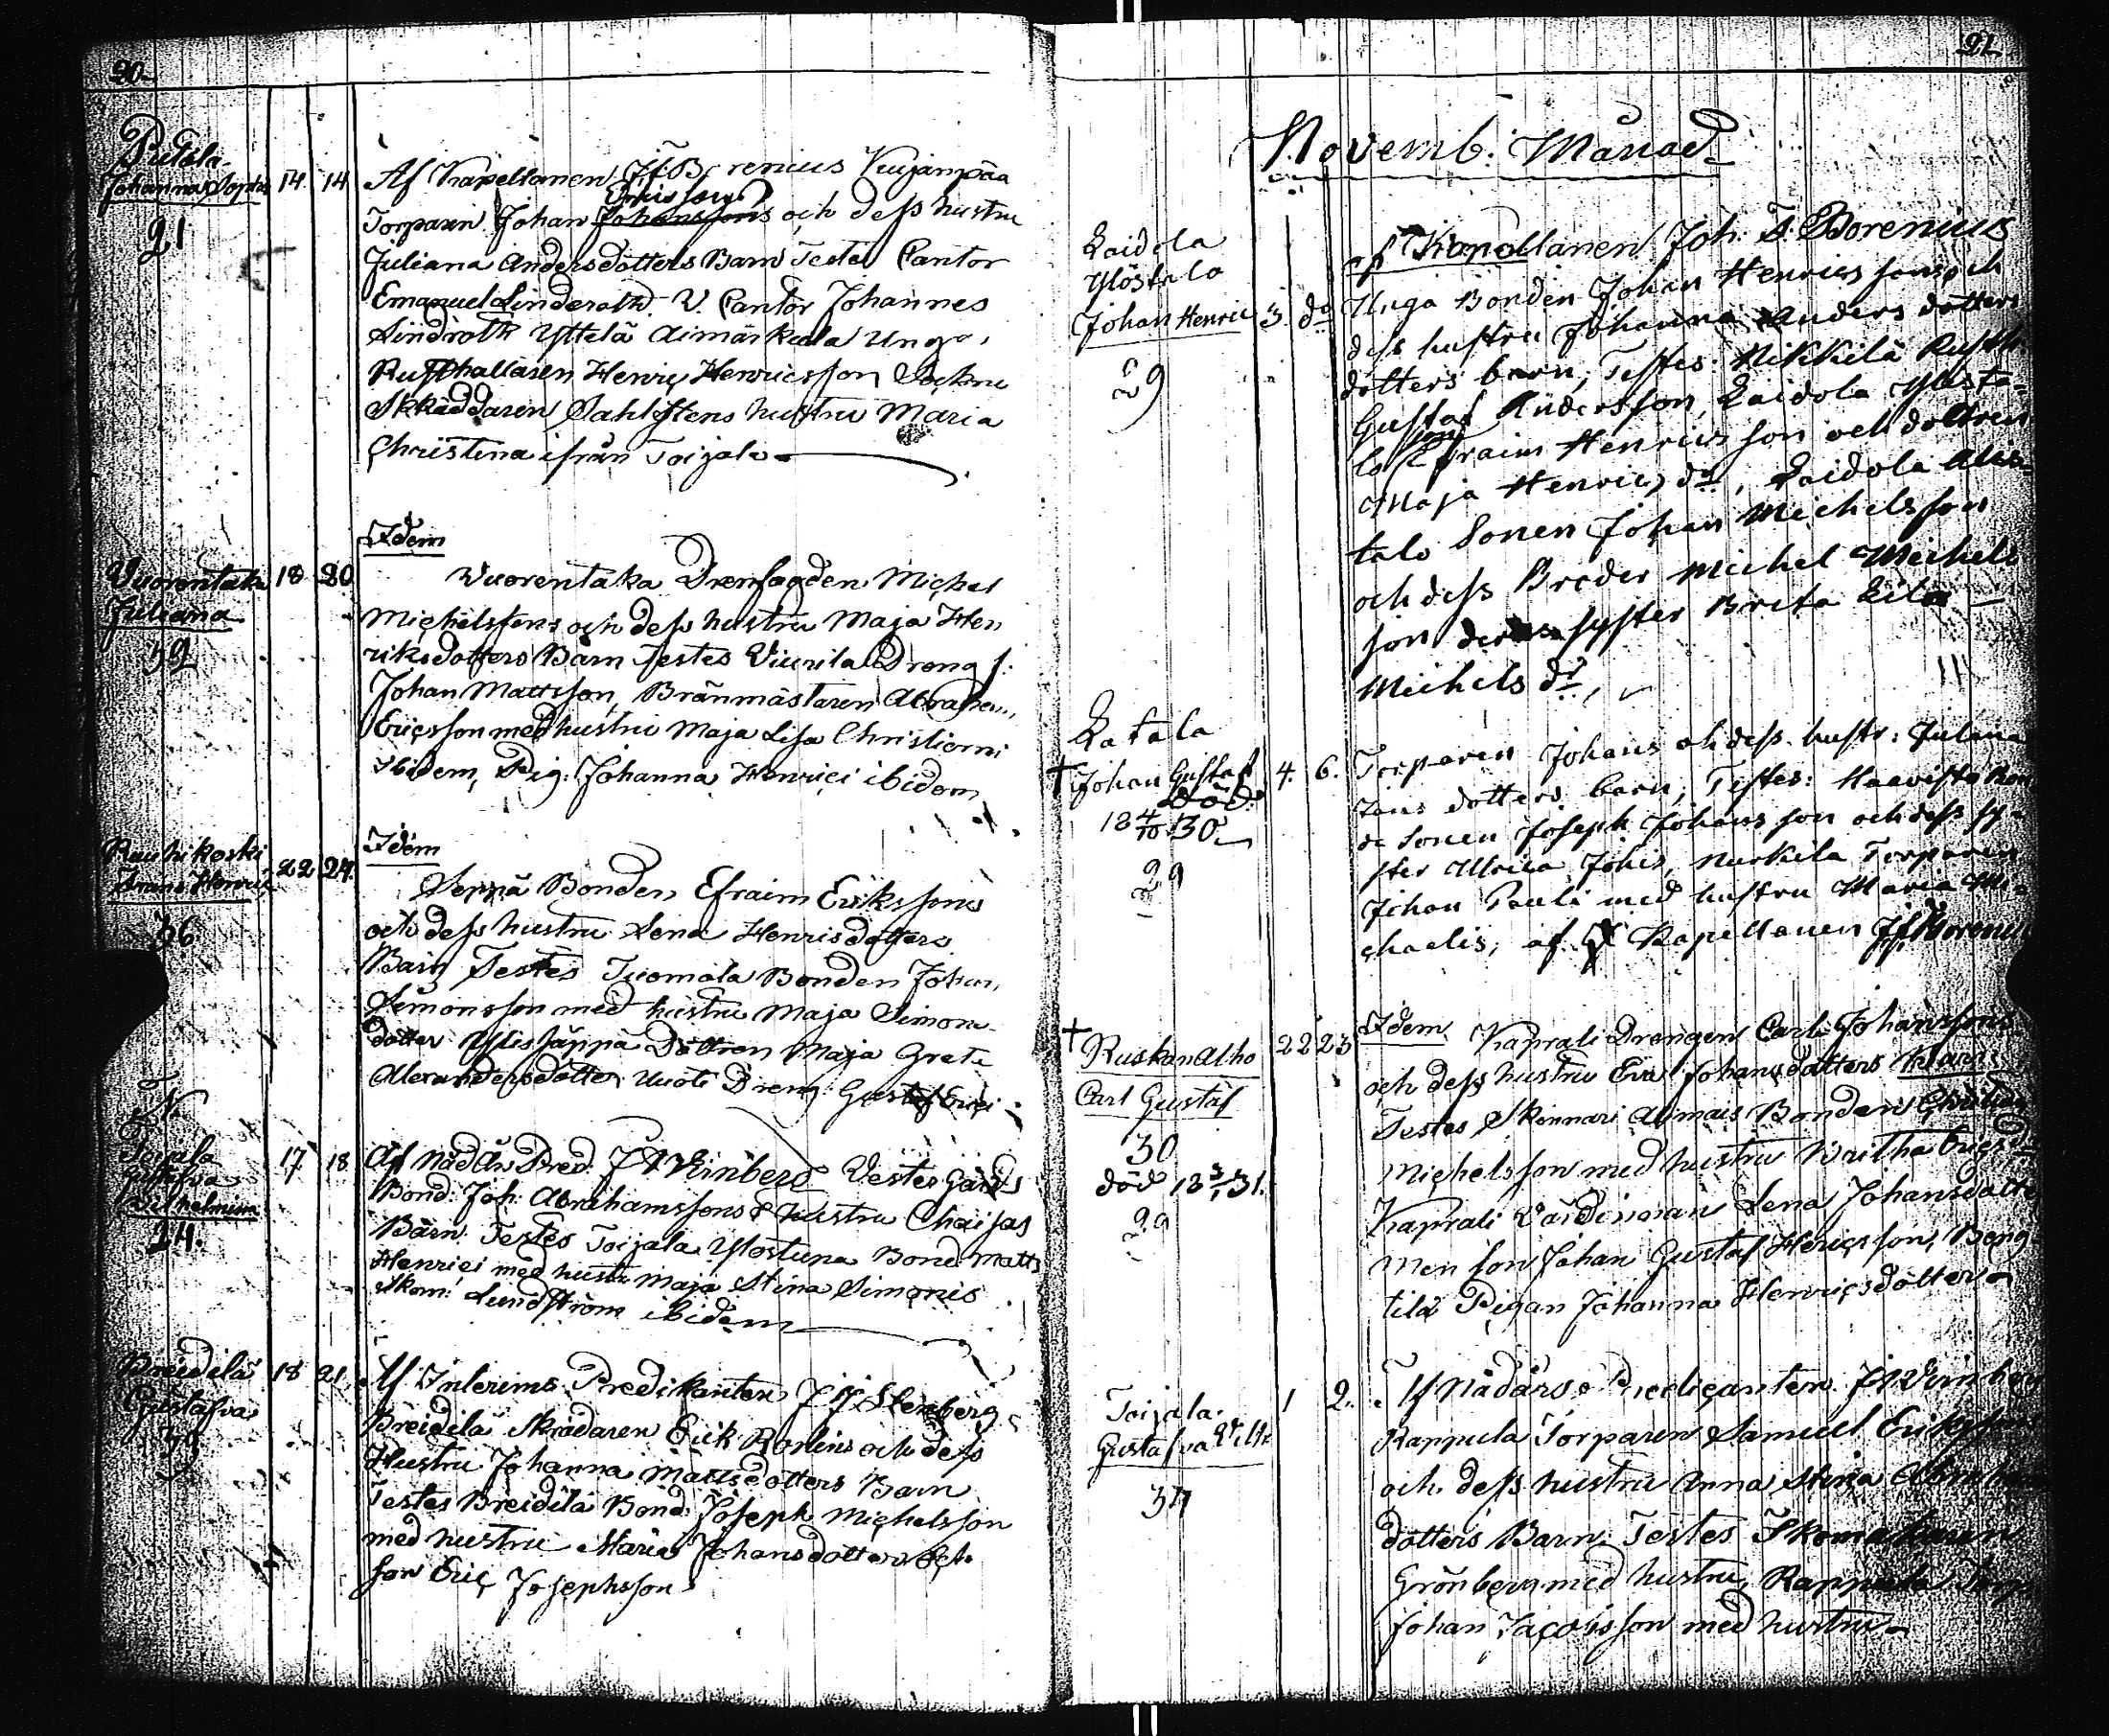 20
Putsla
Johanna Sophia 14. 14
21
Af Kapellanen J F Borenius Kujanpää
Torparen Johan Johanssons och dess hustru
Juliana Andersdotters Barn Testes Cantor
Emanuel Linderoth. V. Cantor Johannes
Lindroth Yttelä Aimärkeala Unga
Rusthållaren Henric Henricsson Sockne
Skräddaren Sahlstens hustru Maria
Christina ifrån Toijala
Vuorentaka 18 20
Juliana
32
Idem
Vuorentaka Drenfogden Michel
Michelssons och dess hustru Maja Hen
riksdotters Barn Testes Viurila Dreng
Johan Mattsson, Bränmästaren Abraham
Ericsson med hustru Maja Lisa Christierni
Ibidem, Pig. Johanna Henrici ibidem
Rauhikoski 22 24.
Frans Henric
36
Idem
Seppä Bonden Efraim Erikssons
och dess hustru Lena Henrisdotters
Barn Testes Tuomola Bonden Johan
Simonsson med hustru Maja Simons
dotter Ylisjäppä Dottren Maja Greta
Alexandersdotter Uuoti Dreng Gustaf Erici
N
Toijala 17. 18
Gustafva
Vilhelmina
24.
Af Nåd. års Pred. J A Winberg Vestergårds
Bond. Joh. Abrahamssons & hustru Chaisas
Barn. Testes Toijala Ylöstuna Bond. Matts
Henrici med hustr Maja Stina Simonis
Skom: Lundström ibidem
Breidilä 18 21.
Gustafva
39
Af Interims Predikanten J J Stenberg
Breidilä Skrädaren Erik Roslins och dess
Hustru Johanna Mattsdotters Barn
Testes Breidilä Bond. Joseph Michelsson
med hustru Maria Johansdotter och
son Eric Josephsson
21.
Novemb: Månad
Laidola
Ylöstalo
Johan Henric 3. do
29
af Kapellanen Joh: F. Borenius
Unga Bonden Johan Henrics sons och
dess hustru Johanna Anders dotters
dotters barn; Testes: Nikkilä Rusth
Gustaf Andersson, Laidola Ylösta-
lo son Efraim Henrics son och dottren
Maja Henrics dr, Laidola Alas-
talo Sonen Johan Michelsson
och dess Broder Michel Michels
son deras syster Brita Lisa
Michels dr,
Latala
† Johan Gustaf 4. 6.
död
18 4/10 30.
29
Torparen Johans och dess hustr: Juliana
Zans dotters barn; Testes: Haavisto Bon
de Sonen Joseph Johans son och dess sy-
ster Ulrica Johis, Nurkila Torparen
Johan Pauli med hustru Maria Mi-
chaelis; af Kapellanen J F Borenius
† Ruskan alho 22 23
Carl Gustaf
30
död 18 3/1 31.
29
Idem. Kaprali Drengen Carl Johanssons
och dess hustru Eva Johansdotters Barn
Testes Skinnari Alimais Bonden Christian
Michelsson med hustru Waitha Erics dr
Kaprali Värdinnan Lena Johansdotter
Men son Johan Gustaf Henricsson, Beng
tilä Pigan Johanna Henricsdotter
Toijala. 1 2.
Gustafva Vilh
34
Af Nådårs Predicanten J A Winberg
Rappula Torparen Samuel Eriksson
och dess hustru Anna Stina Abraham
dotters Barn. Testes Skomakaren
Grönberg med hustru, Rappula Torp
Johan Jacobsson med hustru